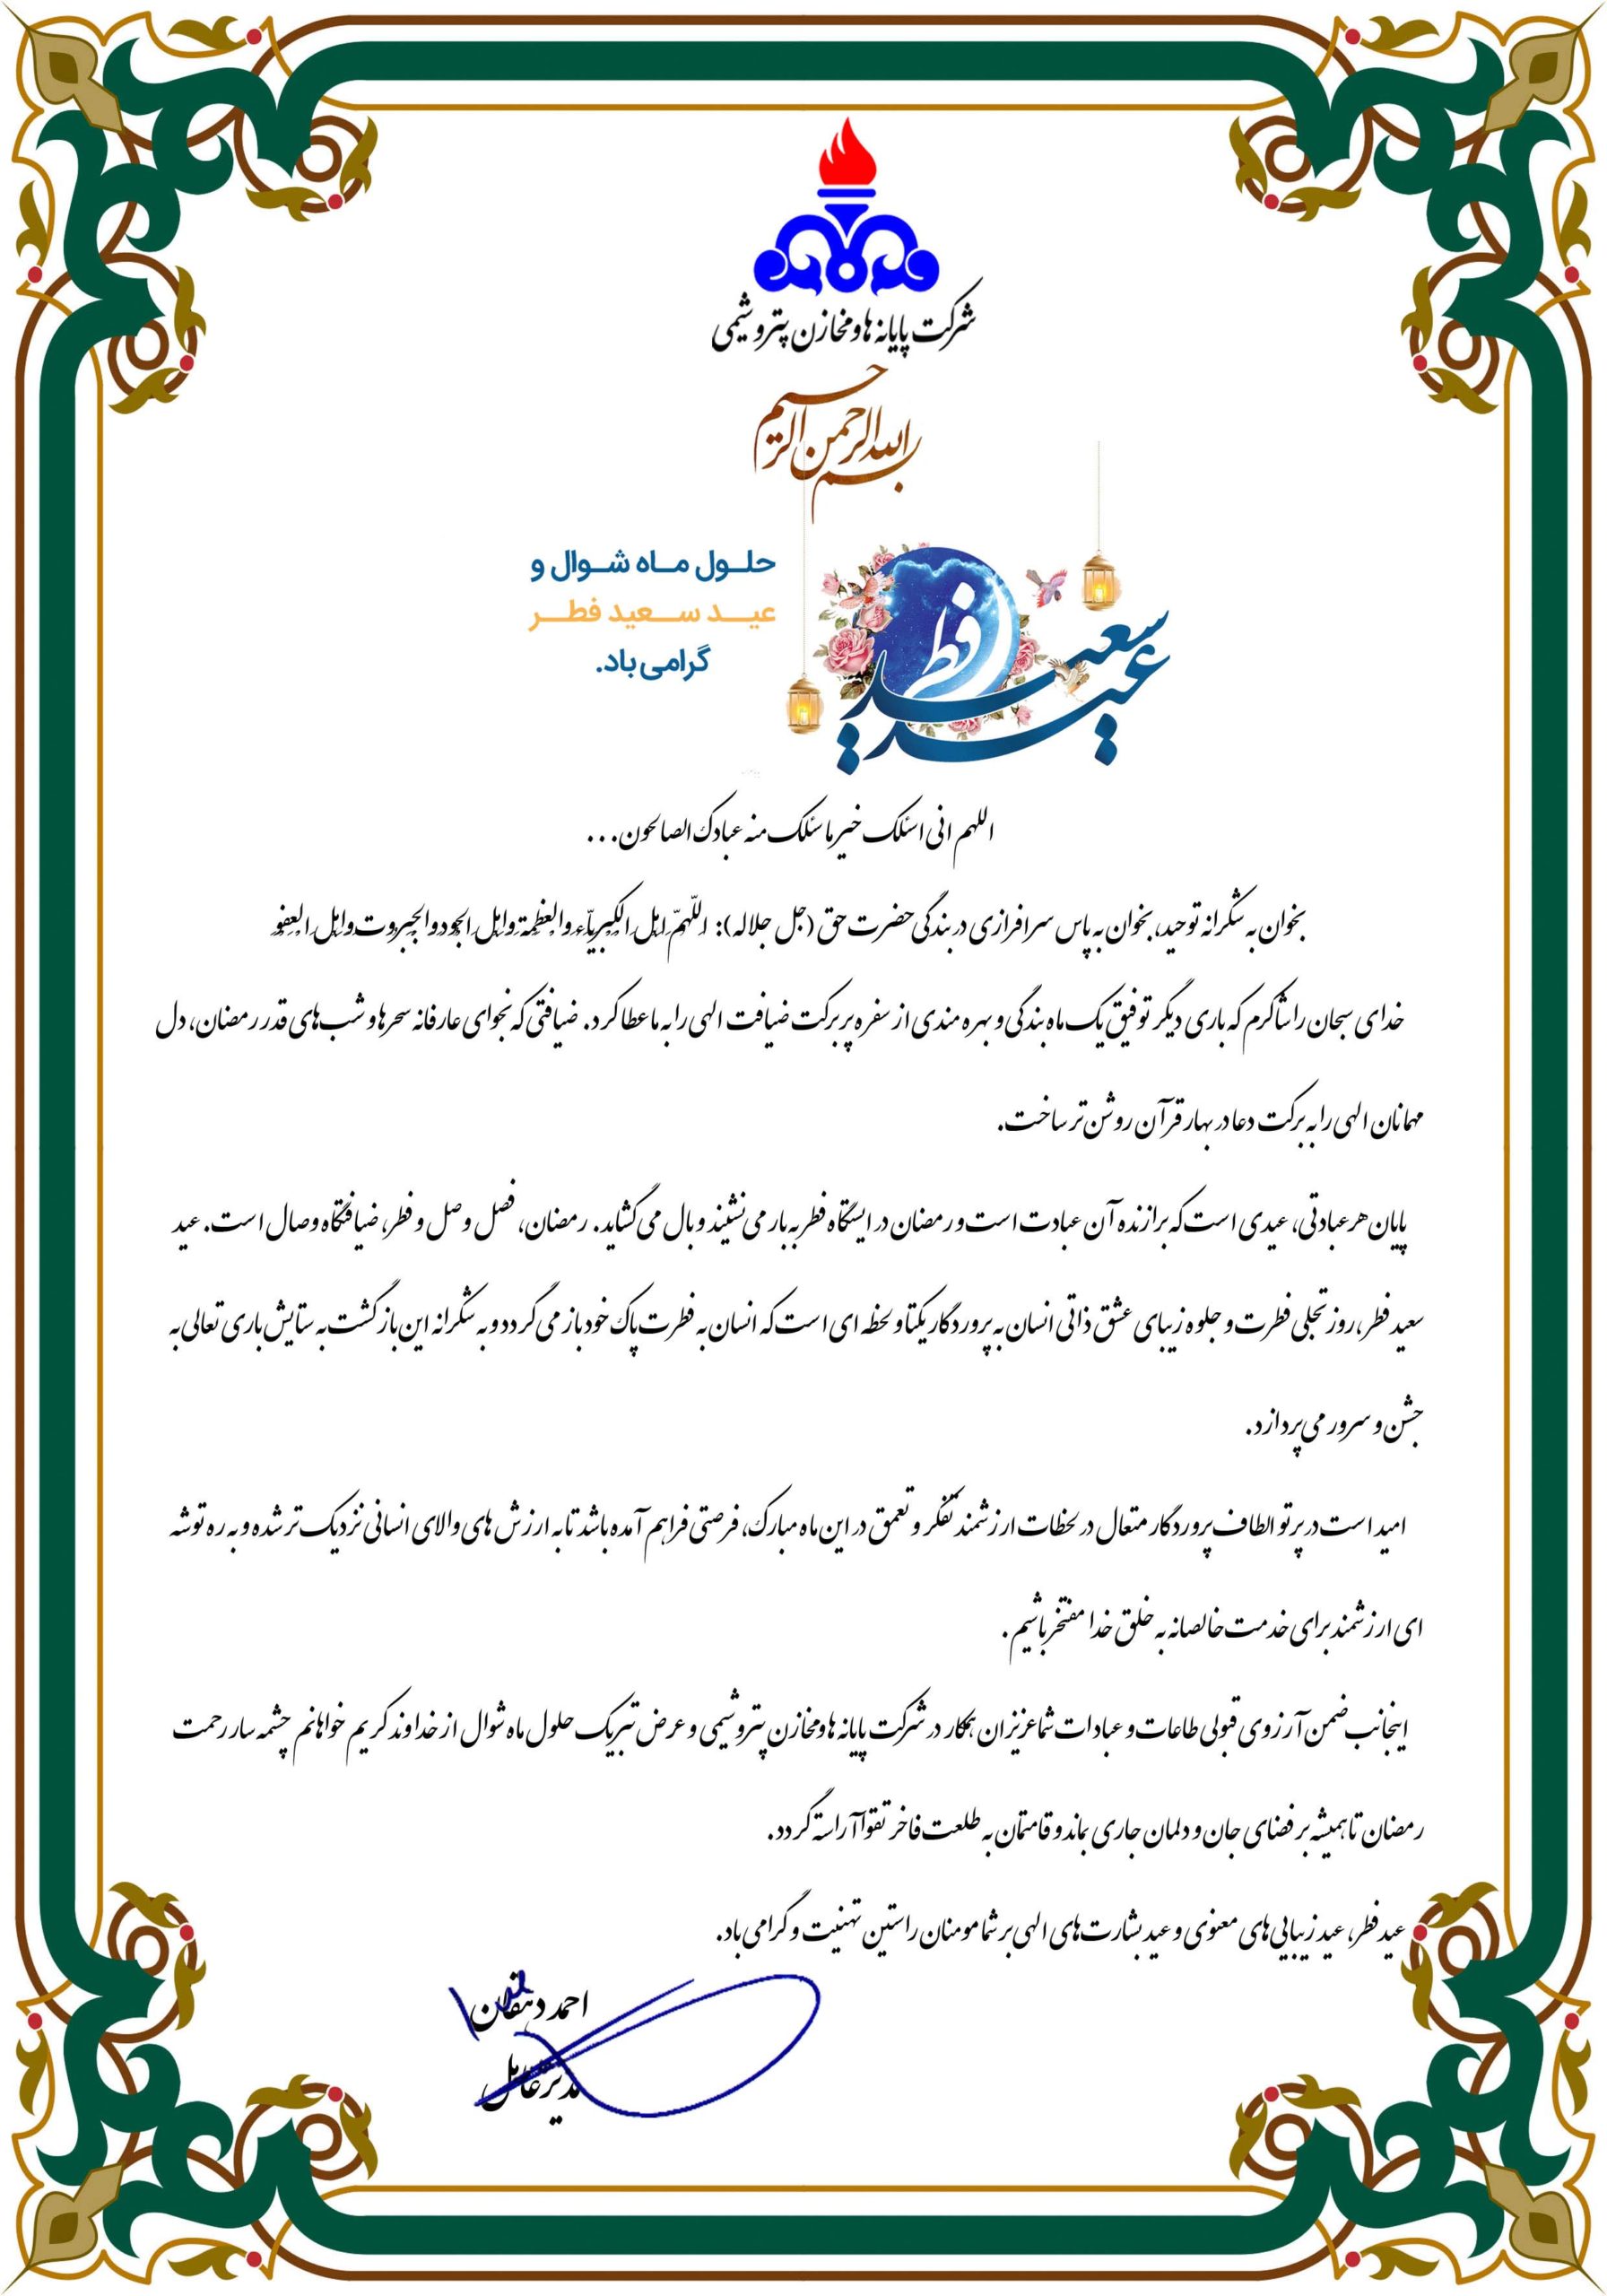 شرکت پایانه ها و مخازن پتروشیمی
بسم الله الرحمن الرحیم
حلول ماه شوال و
عید سعید فطر
گرامی باد.
عید سعید فطر
اللهم انی اسئلک خیر ما سئلک منه عبادک الصالحون...
بخوان به شکرانه توحید، بخوان به پاس سرافرازی در بندگی حضرت حق (جل جلاله): اللّهمّ اهل الکبریاّء والعظمة واهل الجود والجبروت واهل العفو
خدای سبحان را شاکرم که باری دیگر توفیق یک ماه بندگی و بهره مندی از سفره پر برکت ضیافت الهی را به ما عطا کرد. ضیافتی که نجوای عارفانه سحرها و شب های قدر رمضان، دل
مهمانان الهی را به برکت دعا در بهار قرآن روشن تر ساخت.
پایان هر عبادتی، عیدی است که برازنده آن عبادت است و رمضان در ایستگاه فطر به بار می نشیند و بال می گشاید. رمضان، فصل وصل و فطر، ضیافتگاه وصال است. عید
سعید فطر، روز تجلی فطرت و جلوه زیبای عشق ذاتی انسان به پروردگار یکتا و لحظه ای است که انسان به فطرت پاک خود باز می گردد و به شکرانه این بازگشت به ستایش باری تعالی به
جشن و سرور می پردازد.
امید است در پرتو الطاف پروردگار متعال در لحظات ارزشمند تفکر و تعمق در این ماه مبارک، فرصتی فراهم آمده باشد تا به ارزش های والای انسانی نزدیک تر شده و به ره توشه
ای ارزشمند برای خدمت خالصانه به خلق خدا مفتخر باشیم.
اینجانب ضمن آرزوی قبولی طاعات و عبادات شما عزیزان همکار در شرکت پایانه ها و مخازن پتروشیمی و عرض تبریک حلول ماه شوال از خداوند کریم خواهانم چشمه سار رحمت
رمضان تا همیشه بر فضای جان و دلمان جاری بماند و قامتمان به طلعت فاخر تقوا آراسته گردد.
عید فطر، عید زیبایی های معنوی و عید بشارت های الهی بر شما مومنان راستین تهنیت و گرامی باد.
احمد دهقان
مدیرعامل